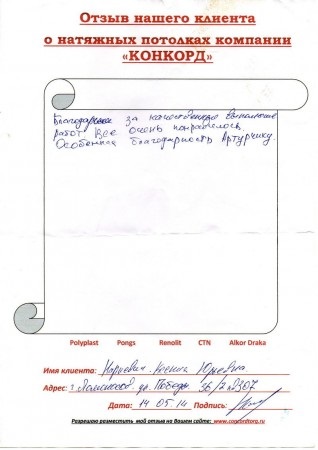 Отзыв нашего клиента
о натяжных потолках компании
«КОНКОРД»
Благодарность за качественное выполнение
работ Все очень понравилось.
Особенная благодарность Артурчику.
Polyplast Pongs Renolit CTN Alkor Draka
Имя клиента: Ксения Юрьевна
Адрес: г Ломоносов ул. Победы 36/2
Дата: 14 05 14 Подпись:
Разрешаю разместить мой отзыв на Вашем сайте: www.concordtorg.ru